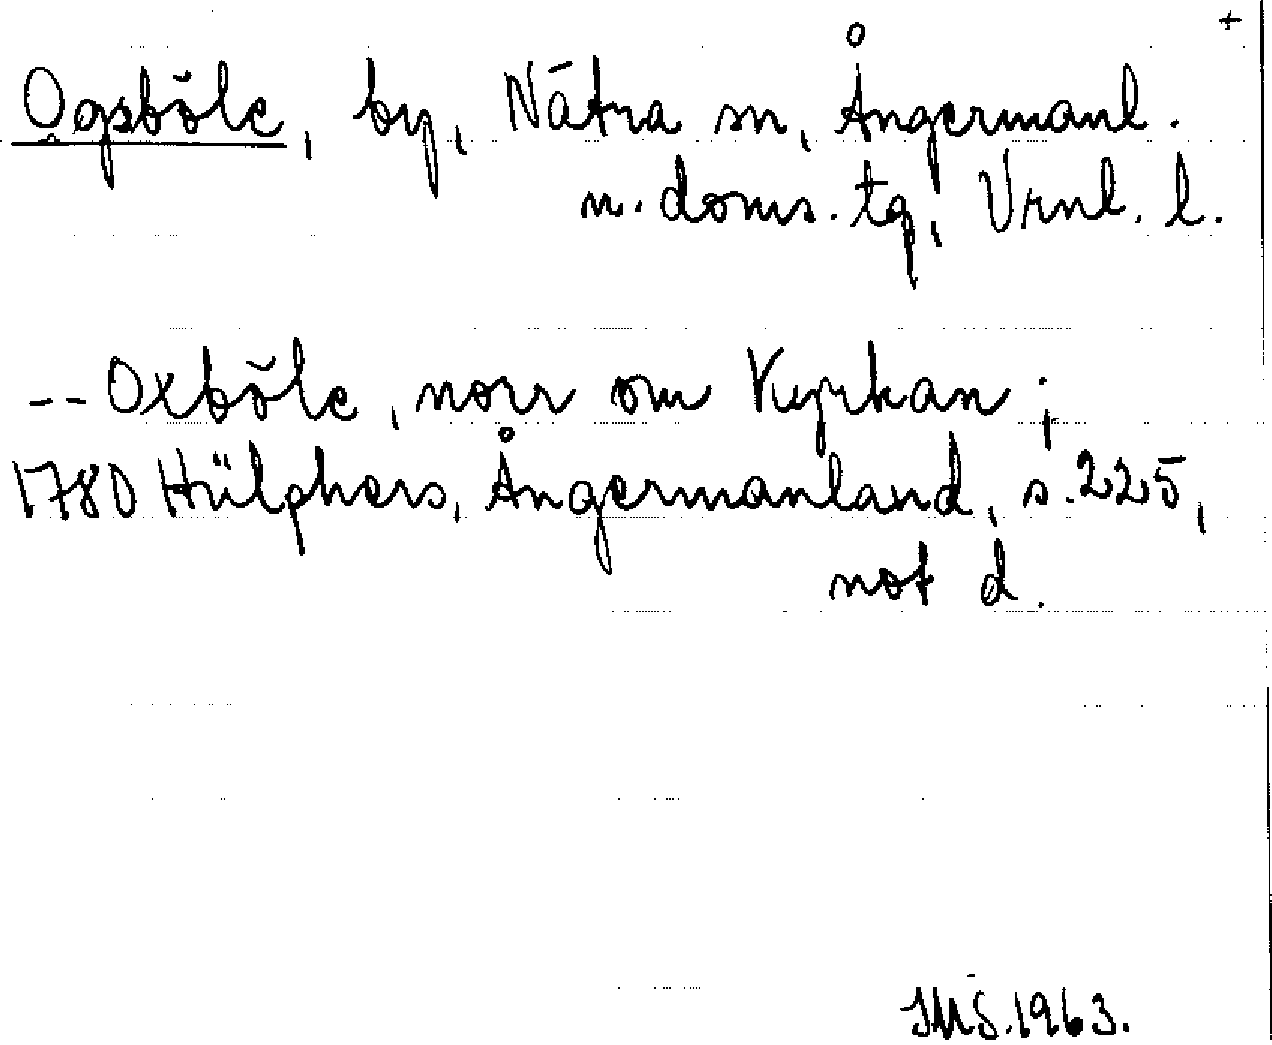 +
Ogsböle, by, Nätra sn, Ångermanl.
n. doms. tg, Vrnl. l.
-- Oxböle, norr om Kyrkan;
1780 Hülphers, Ångermanland, s. 225,
not d.
JMS. 1963.